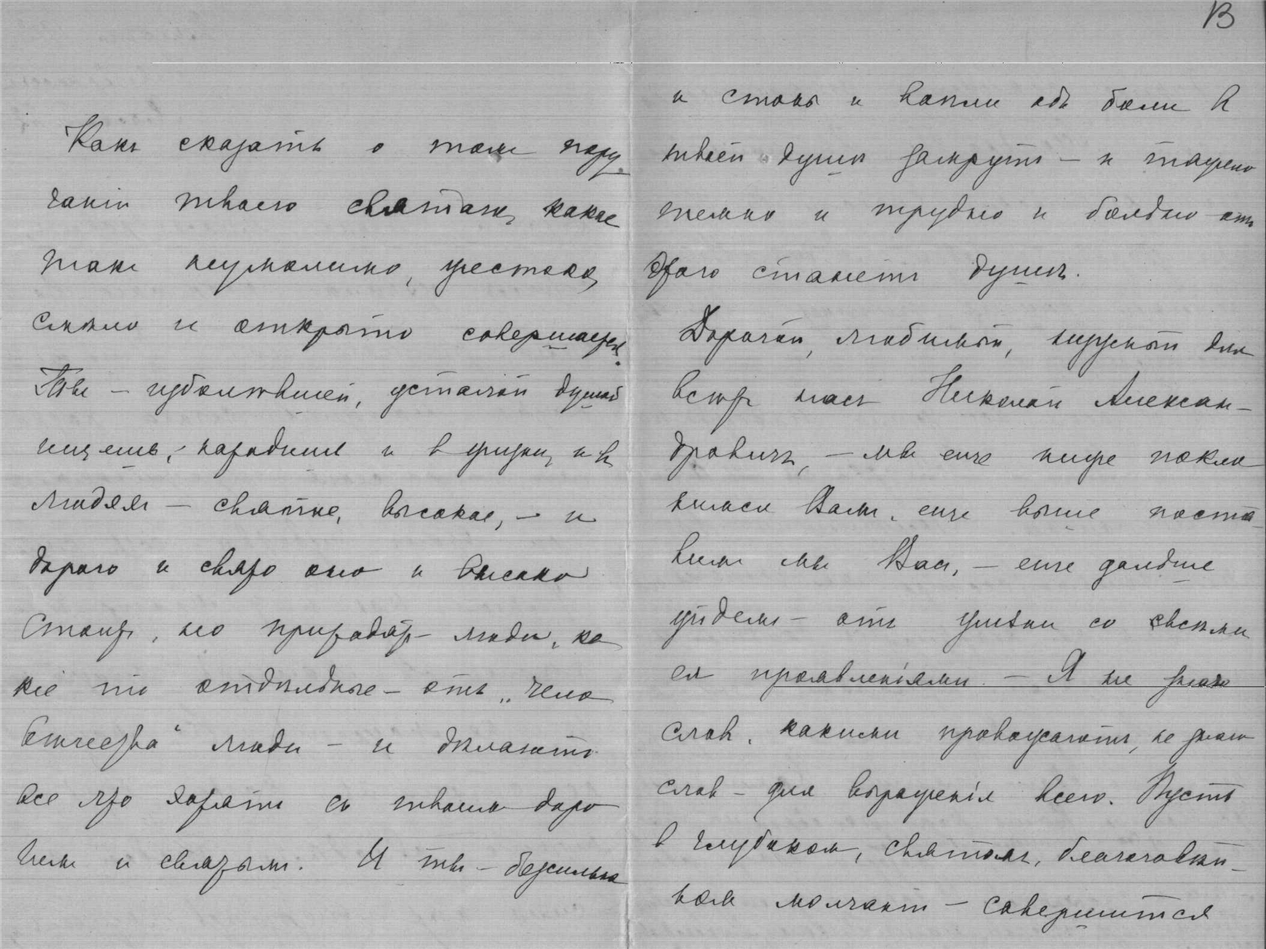 Какъ сказать о томъ пору
ганіи твоего святого, какое
такъ неумолимо, жестоко,
смѣло и открыто совершается.
Ты – изболѣвшей, усталой душой
ищешь, находишь и в жизни, и в
людяхъ – святое, высокое, – и
дорого и свято оно и высоко
стоитъ, но приходятъ – люди, ка
кіе то отдѣльные – отъ „чело
вѣчества" люди – и дѣлаютъ
все что хотятъ съ твоимъ доро
гимъ и святымъ. И ты – безсильно
В
и стоны и вопли отъ боли в
твоей душѣ замрутъ – и тяжело
темно и трудно и больно отъ
этого станетъ душѣ.
Дорогой, любимый, нужный для
всѣхъ насъ Николай Алексан–
дровичъ, – мы еще ниже покло
нимся Вамъ, еще выше поста
вимъ мы Васъ, – еще дальше
уйдемъ – отъ жизни со всѣми
ея проявленіями – Я не знаю
словъ, какими провожаютъ, не знаю
словъ – для выраженія всего. Пусть
в глубокомъ, святомъ, благоговѣй–
номъ молчаніи – совершится